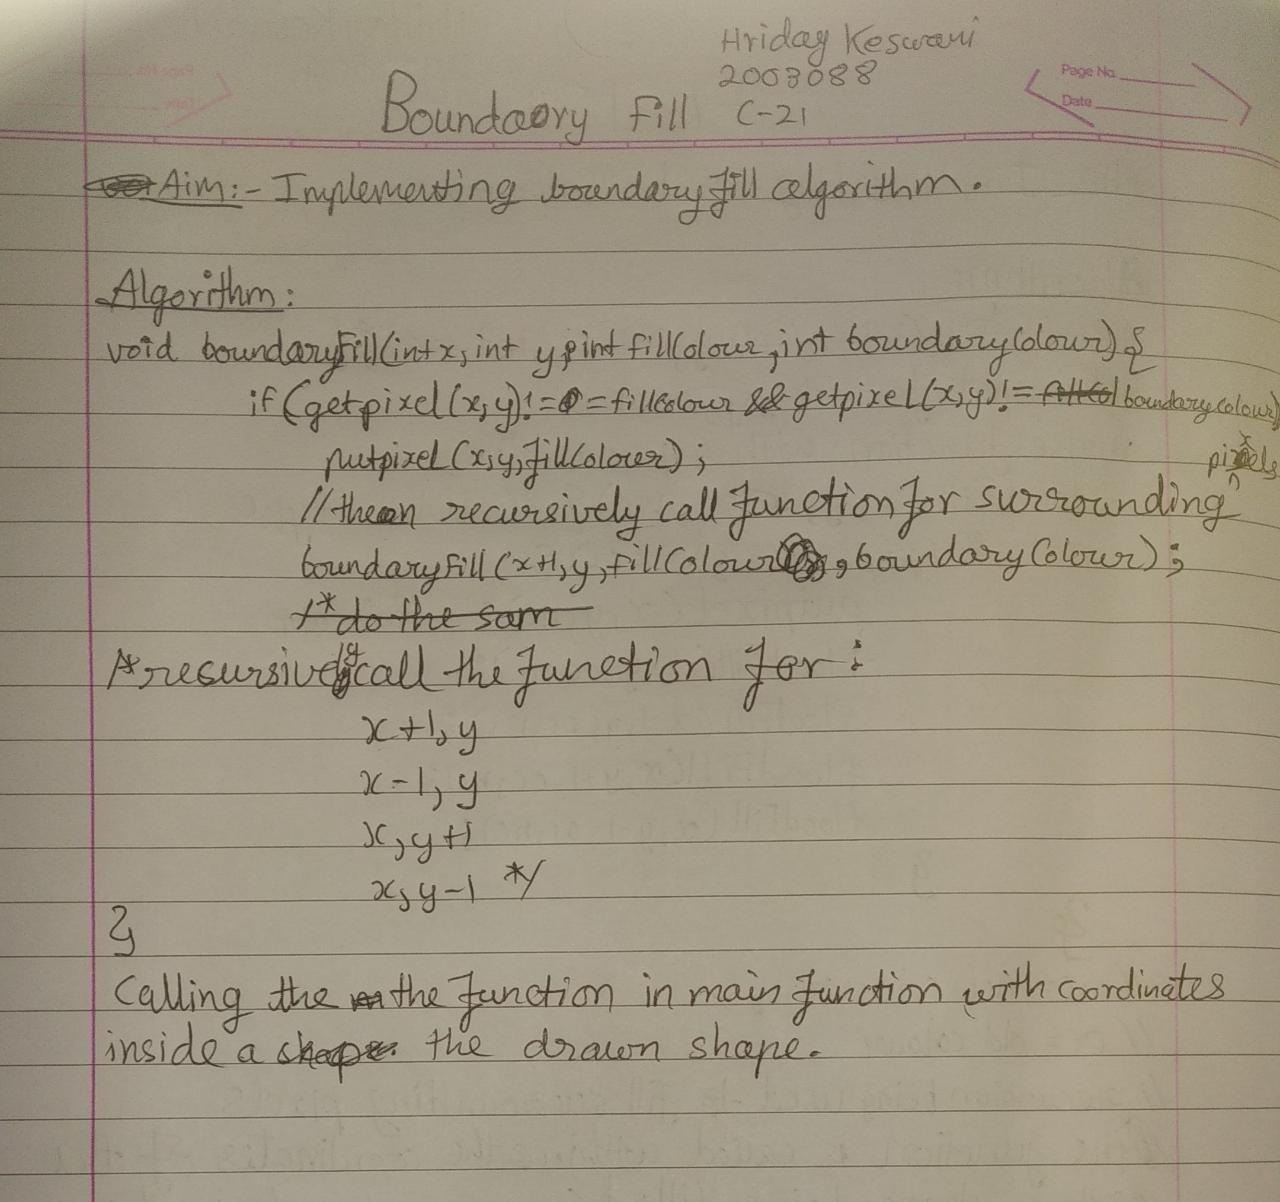 Hriday Keswani
2003088
Page No.
Date
Boundaory Fill C-21
Aim:- Implementing boundary fill algorithm.
Algorithm:
void boundaryFill(int x, int y, int fillColour, int boundaryColour) {
if (getpixel(x,y)!= = fillColour && getpixel(x,y)!= boundarycolour)
putpixel (x,y,fillColour);
pixels
//then recursively call function for surrounding
boundaryFill(x+1,y,fillColour, boundaryColour);
/* do the sam
/*resursively call the function for:
x+1,y
x-1, y
x,y+1
x,y-1 */
}
Calling the the function in main function with coordinates
inside a shape. the drawn shape.